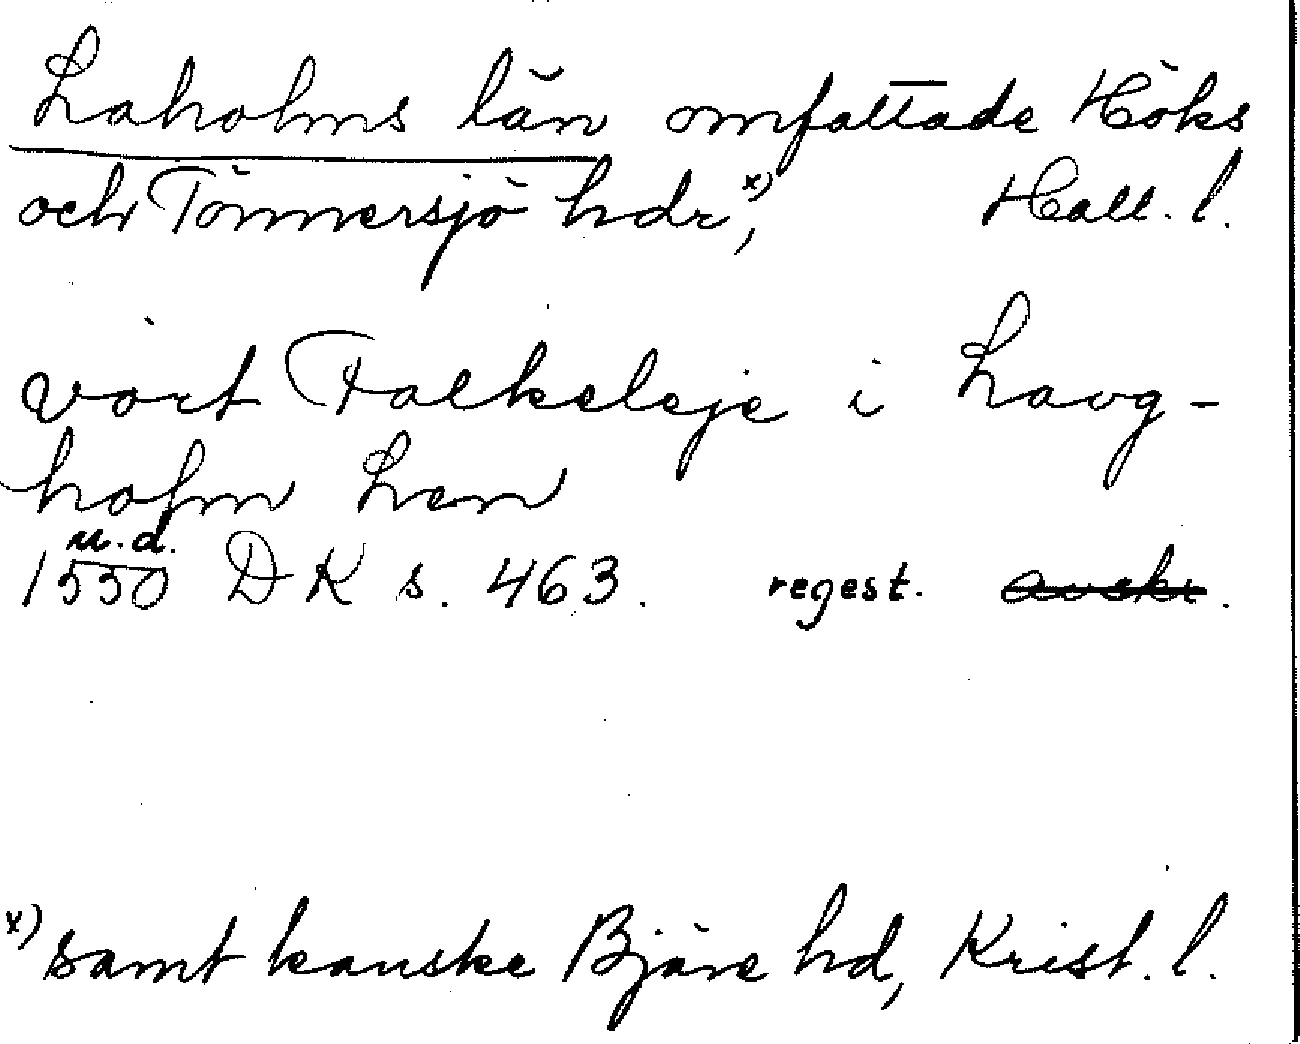 Laholms län omfattade Höks
och Tönnersjö hdr,x) Hall. l.
vort Falkeleje i Lavg-
holm Len
u.d.
1550 DK s. 463. regest. avskr.
x) samt kanske Bjäre hd, Krist. l.